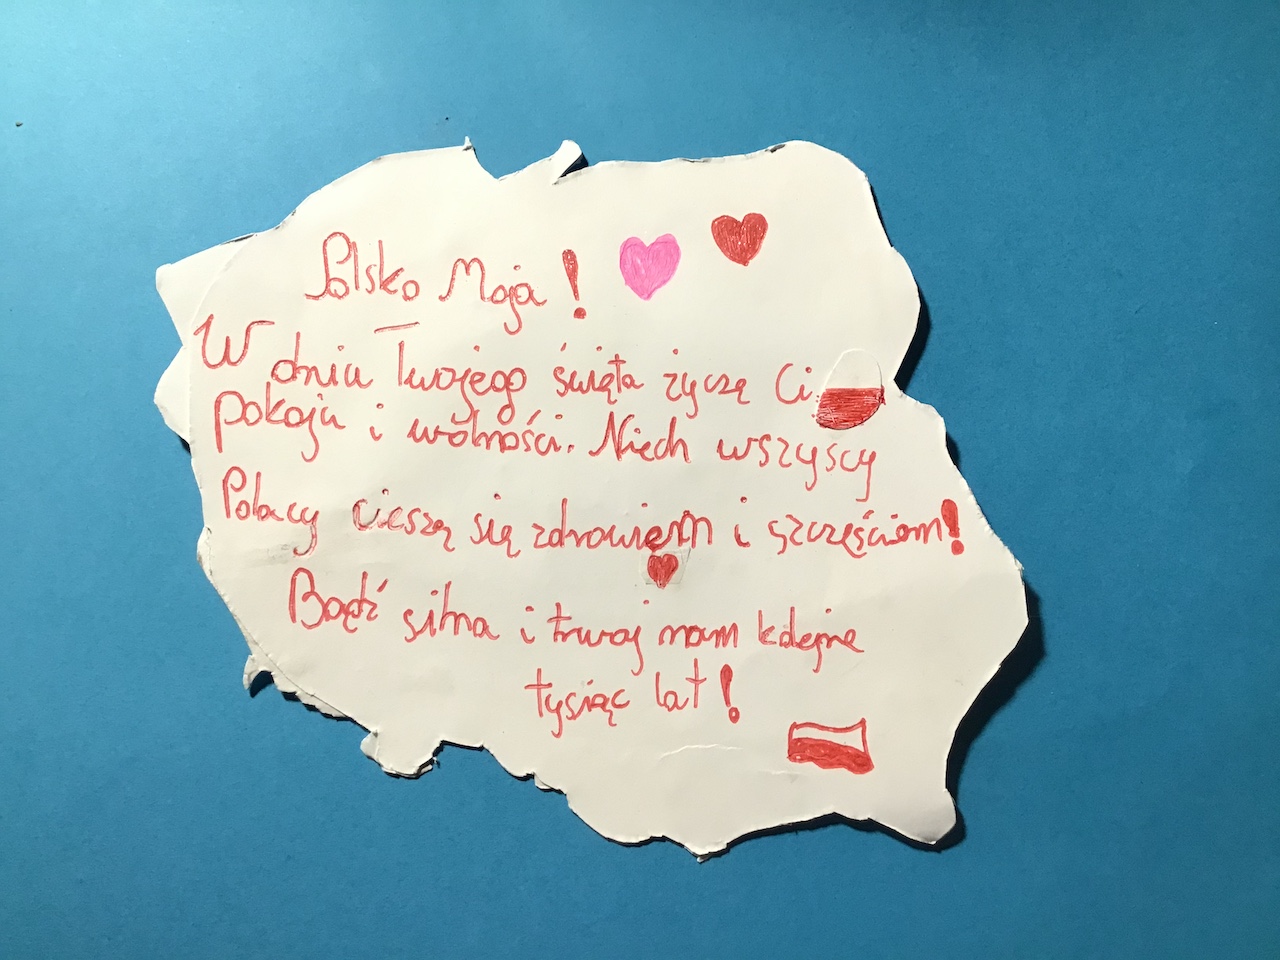 Polsko Moja!
W dniu Twojego święta życzę Ci
pokoju i wolności. Niech wszyscy
Polacy cieszą się zdrowiem i szczęściem!
Bądź silna i trwaj nam kolejne
tysiąc lat!